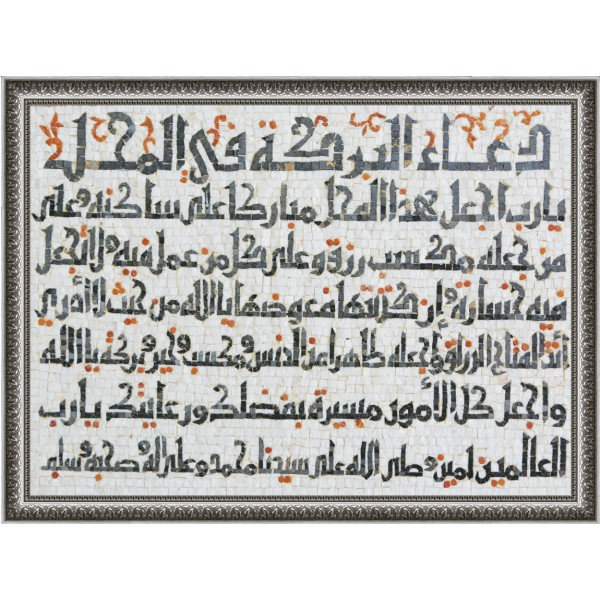 دعاء البركة في المحل
يارب اجعل هذا المحل مباركا على ساكنيه وعلى
من جعله مكسب رزق وعلى كل من عمل فيه ولا تجعل
فيه خسارة وإن كتبتها فعوضها يا الله من حيث لا أدري
أنت الفتاح الرزاق واجعله طاهرا من الدنس ومكسب وخير وبركة يا الله
واجعل كل الأمور مسيرة بفضلك ورعايتك يارب
العالمين امين وصلى الله على سيدنا محمد وعلى آله وصحبه وسلم